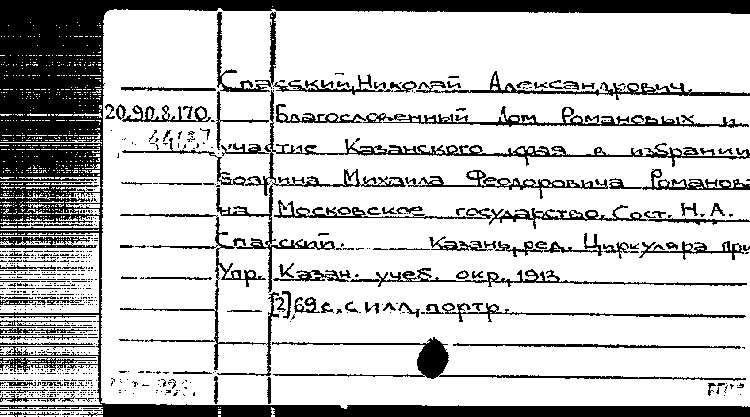 Спасский, Николай Александрович.
20.90.8.170. Благословенный Дом Романовых и
44187 участие Казанского края в избрании
боярина Михаила Феодоровича Романова
на Московское государство. Сост. Н.А.
Спасский. Казань, ред. Циркуляра при
Упр. Казан. учеб. окр., 1913
[2], 69 с. с илл., портр.